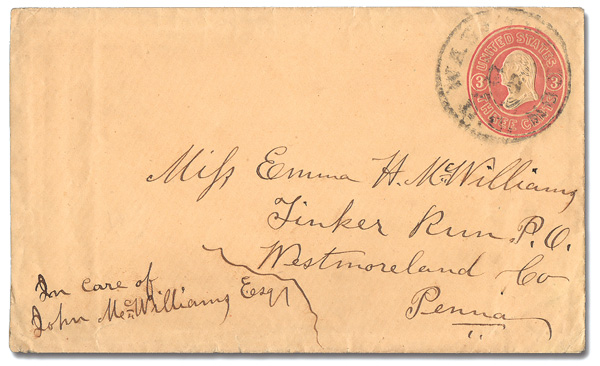 UNITED STATES
3 3
THREE CENTS
Miss Emma H. McWilliams
Tinker Run P.O.
Westmoreland Co
Penna
In care of
John McWilliams Esqr